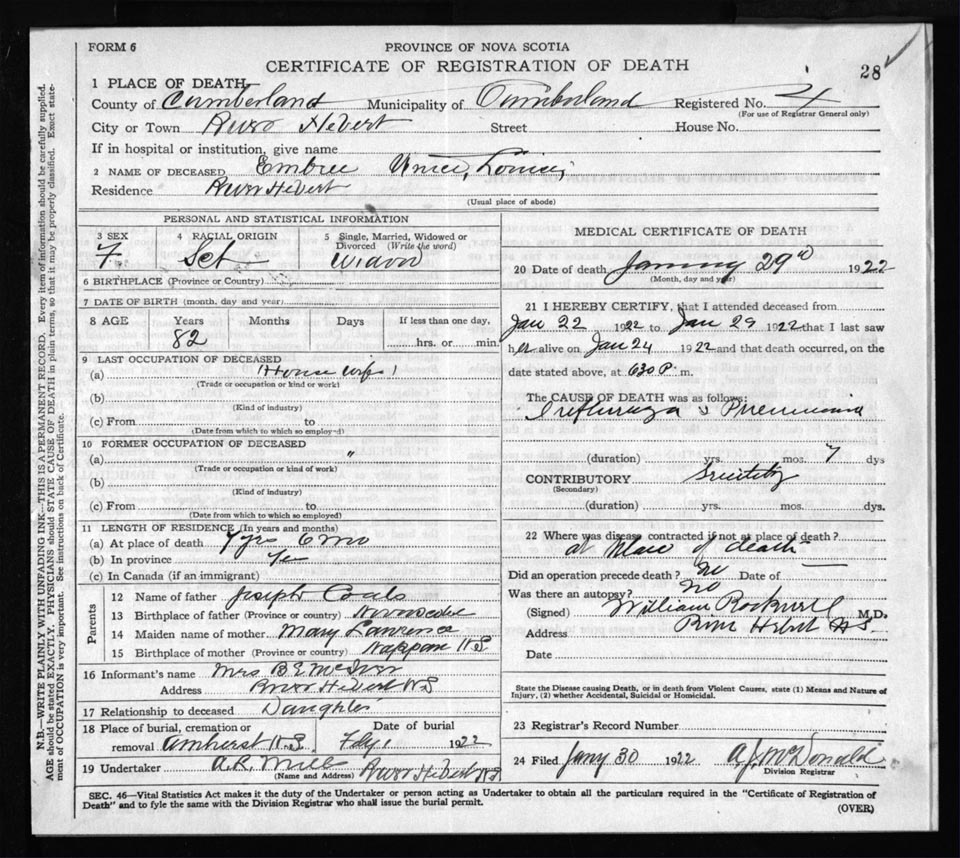 FORM 6
PROVINCE OF NOVA SCOTIA
CERTIFICATE OF REGISTRATION OF DEATH
28
1 PLACE OF DEATH
County of Cumberland Municipality of Cumberland Registered No. 4
(For use of Registrar General only)
City or Town River Hebert Street House No.
If in hospital or institution, give name
2 NAME OF DECEASED Embree Louise
Residence River Hebert
(Usual place of abode)
PERSONAL AND STATISTICAL INFORMATION
3 SEX 4 RACIAL ORIGIN 5 Single, Married, Widowed or Divorced (Write the word)
F. Sct Widow
6 BIRTHPLACE (Province or Country)
7 DATE OF BIRTH (month, day and year)
8 AGE Years Months Days If less than one day,
82 hrs. or min
9 LAST OCCUPATION OF DECEASED
(a) House wife
(Trade or occupation or kind or work)
(b)
(Kind of industry)
(c) From to
(Date from which to which so employed)
10 FORMER OCCUPATION OF DECEASED
(a) "
(Trade or occupation or kind of work)
(b)
(Kind of industry)
(c) From to
(Date from which to which so employed)
11 LENGTH OF RESIDENCE (In years and months)
(a) At place of death yrs 6 mo
(b) In province
(c) In Canada (if an immigrant)
Parents
12 Name of father Joseph Coals
13 Birthplace of father (Province or country)
14 Maiden name of mother Mary Lawrence
15 Birthplace of mother (Province or country) Nappan N.S.
16 Informant's name Mrs B E
Address River Hebert N S
17 Relationship to deceased Daughter
18 Place of burial, cremation or removal Amherst N.S. Date of burial Feby 1 1922
19 Undertaker A.R. Mills River Hebert N.S.
(Name and Address)
MEDICAL CERTIFICATE OF DEATH
20 Date of death January 29th 1922
(Month, day and year)
21 I HEREBY CERTIFY, that I attended deceased from
Jan 22 1922 to Jan 29 1922 that I last saw
her alive on Jan 24 1922 and that death occurred, on the
date stated above, at 630 P. m.
The CAUSE OF DEATH was as follows:
Influenza & Pneumonia
(duration) yrs. mos. 7 dys
CONTRIBUTORY Senility
(Secondary)
(duration) yrs. mos. dys.
22 Where was disease contracted if not at place of death?
at place of death
Did an operation precede death? no Date of —
Was there an autopsy? no
(Signed) William Rockwell M.D.
Address River Hebert N.S.
Date
State the Disease causing Death, or in death from Violent Causes, state (1) Means and Nature of
Injury, (2) whether Accidental, Suicidal or Homicidal.
23 Registrar's Record Number
24 Filed Jany 30 1922 A J McDonald
Division Registrar
SEC. 46—Vital Statistics Act makes it the duty of the Undertaker or person acting as Undertaker to obtain all the particulars required in the "Certificate of Registration of
Death" and to fyle the same with the Division Registrar who shall issue the burial permit.
(OVER)
N.B.—WRITE PLAINLY WITH UNFADING INK—THIS IS A PERMANENT RECORD. Every item of information should be carefully supplied.
AGE should be stated EXACTLY. PHYSICIANS should STATE CAUSE OF DEATH in plain terms, so that it may be properly classified. Exact state-
ment of OCCUPATION is very important. See instructions on back of Certificate.